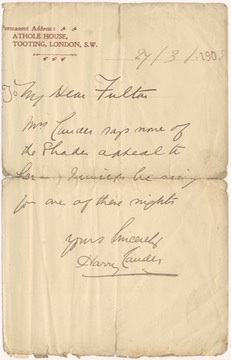 Permanent Address:
ATHOLE HOUSE,
TOOTING, LONDON, S.W.
27/3/190
To My Dear Fulton
Mrs Lauder says none of
the Shades appeal to
for one of these nights
Yours Sincerely
Harry Lauder